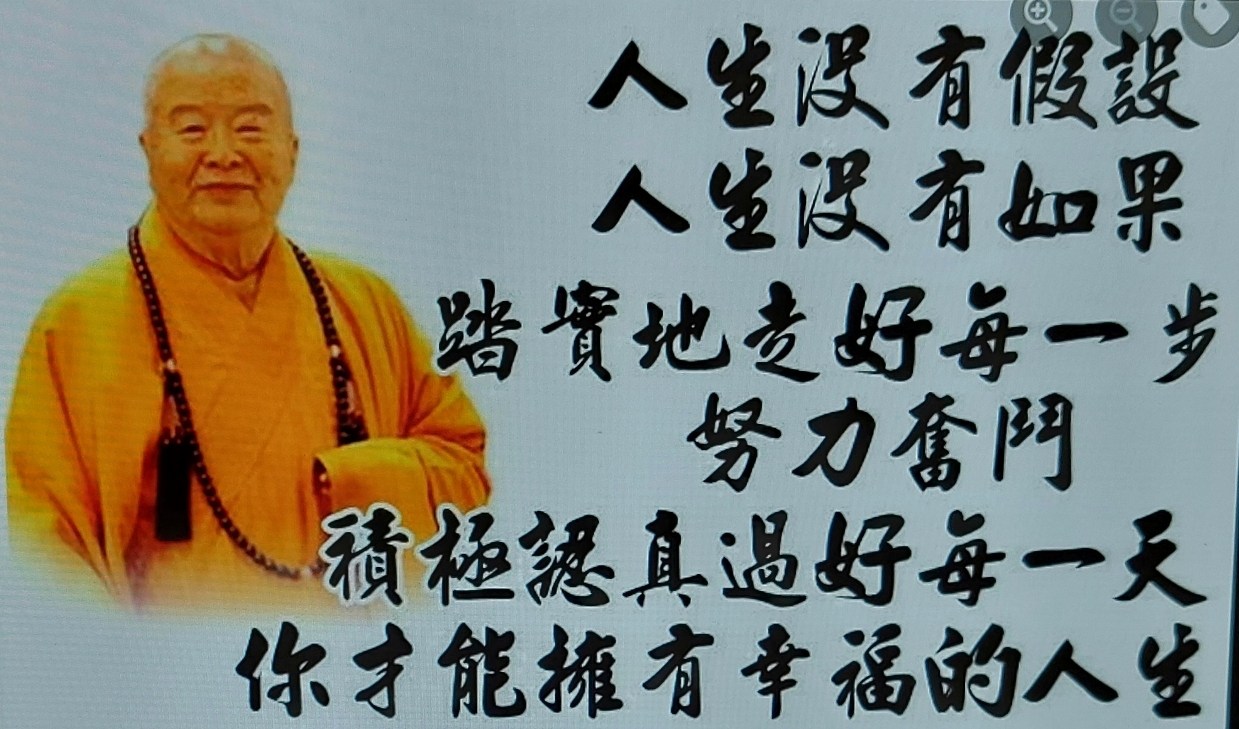 人生沒有假設
人生沒有如果
踏實地走好每一步
努力奮鬥
積極認真過好每一天
你才能擁有幸福的人生